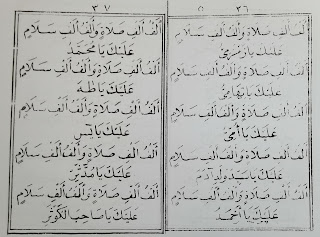 ٣٦
أَلْفُ أَلْفِ صَلَاةٍ وَأَلْفُ أَلْفِ سَلَامٍ
عَلَيْكَ يَا زَمْزَمِيُّ
أَلْفُ أَلْفِ صَلَاةٍ وَأَلْفُ أَلْفِ سَلَامٍ
عَلَيْكَ يَا تِهَامِيُّ
أَلْفُ أَلْفِ صَلَاةٍ وَأَلْفُ أَلْفِ سَلَامٍ
عَلَيْكَ يَا أُمِّيُّ
أَلْفُ أَلْفِ صَلَاةٍ وَأَلْفُ أَلْفِ سَلَامٍ
عَلَيْكَ يَا سَيِّدَ وَلَدِ آدَمَ
أَلْفُ أَلْفِ صَلَاةٍ وَأَلْفُ أَلْفِ سَلَامٍ
عَلَيْكَ يَا أَحْمَدُ
٣٧
أَلْفُ أَلْفِ صَلَاةٍ وَأَلْفُ أَلْفِ سَلَامٍ
عَلَيْكَ يَا مُحَمَّدُ
أَلْفُ أَلْفِ صَلَاةٍ وَأَلْفُ أَلْفِ سَلَامٍ
عَلَيْكَ يَا طٰهٰ
أَلْفُ أَلْفِ صَلَاةٍ وَأَلْفُ أَلْفِ سَلَامٍ
عَلَيْكَ يَا يٰسٓ
أَلْفُ أَلْفِ صَلَاةٍ وَأَلْفُ أَلْفِ سَلَامٍ
عَلَيْكَ يَا مُدَّثِّرُ
أَلْفُ أَلْفِ صَلَاةٍ وَأَلْفُ أَلْفِ سَلَامٍ
عَلَيْكَ يَا صَاحِبَ الْكَوْثَرِ